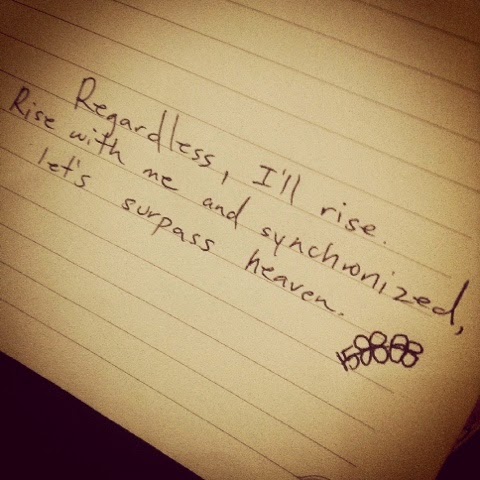 Regardless, I'll rise.
Rise with me and synchronized,
let's surpass heaven.